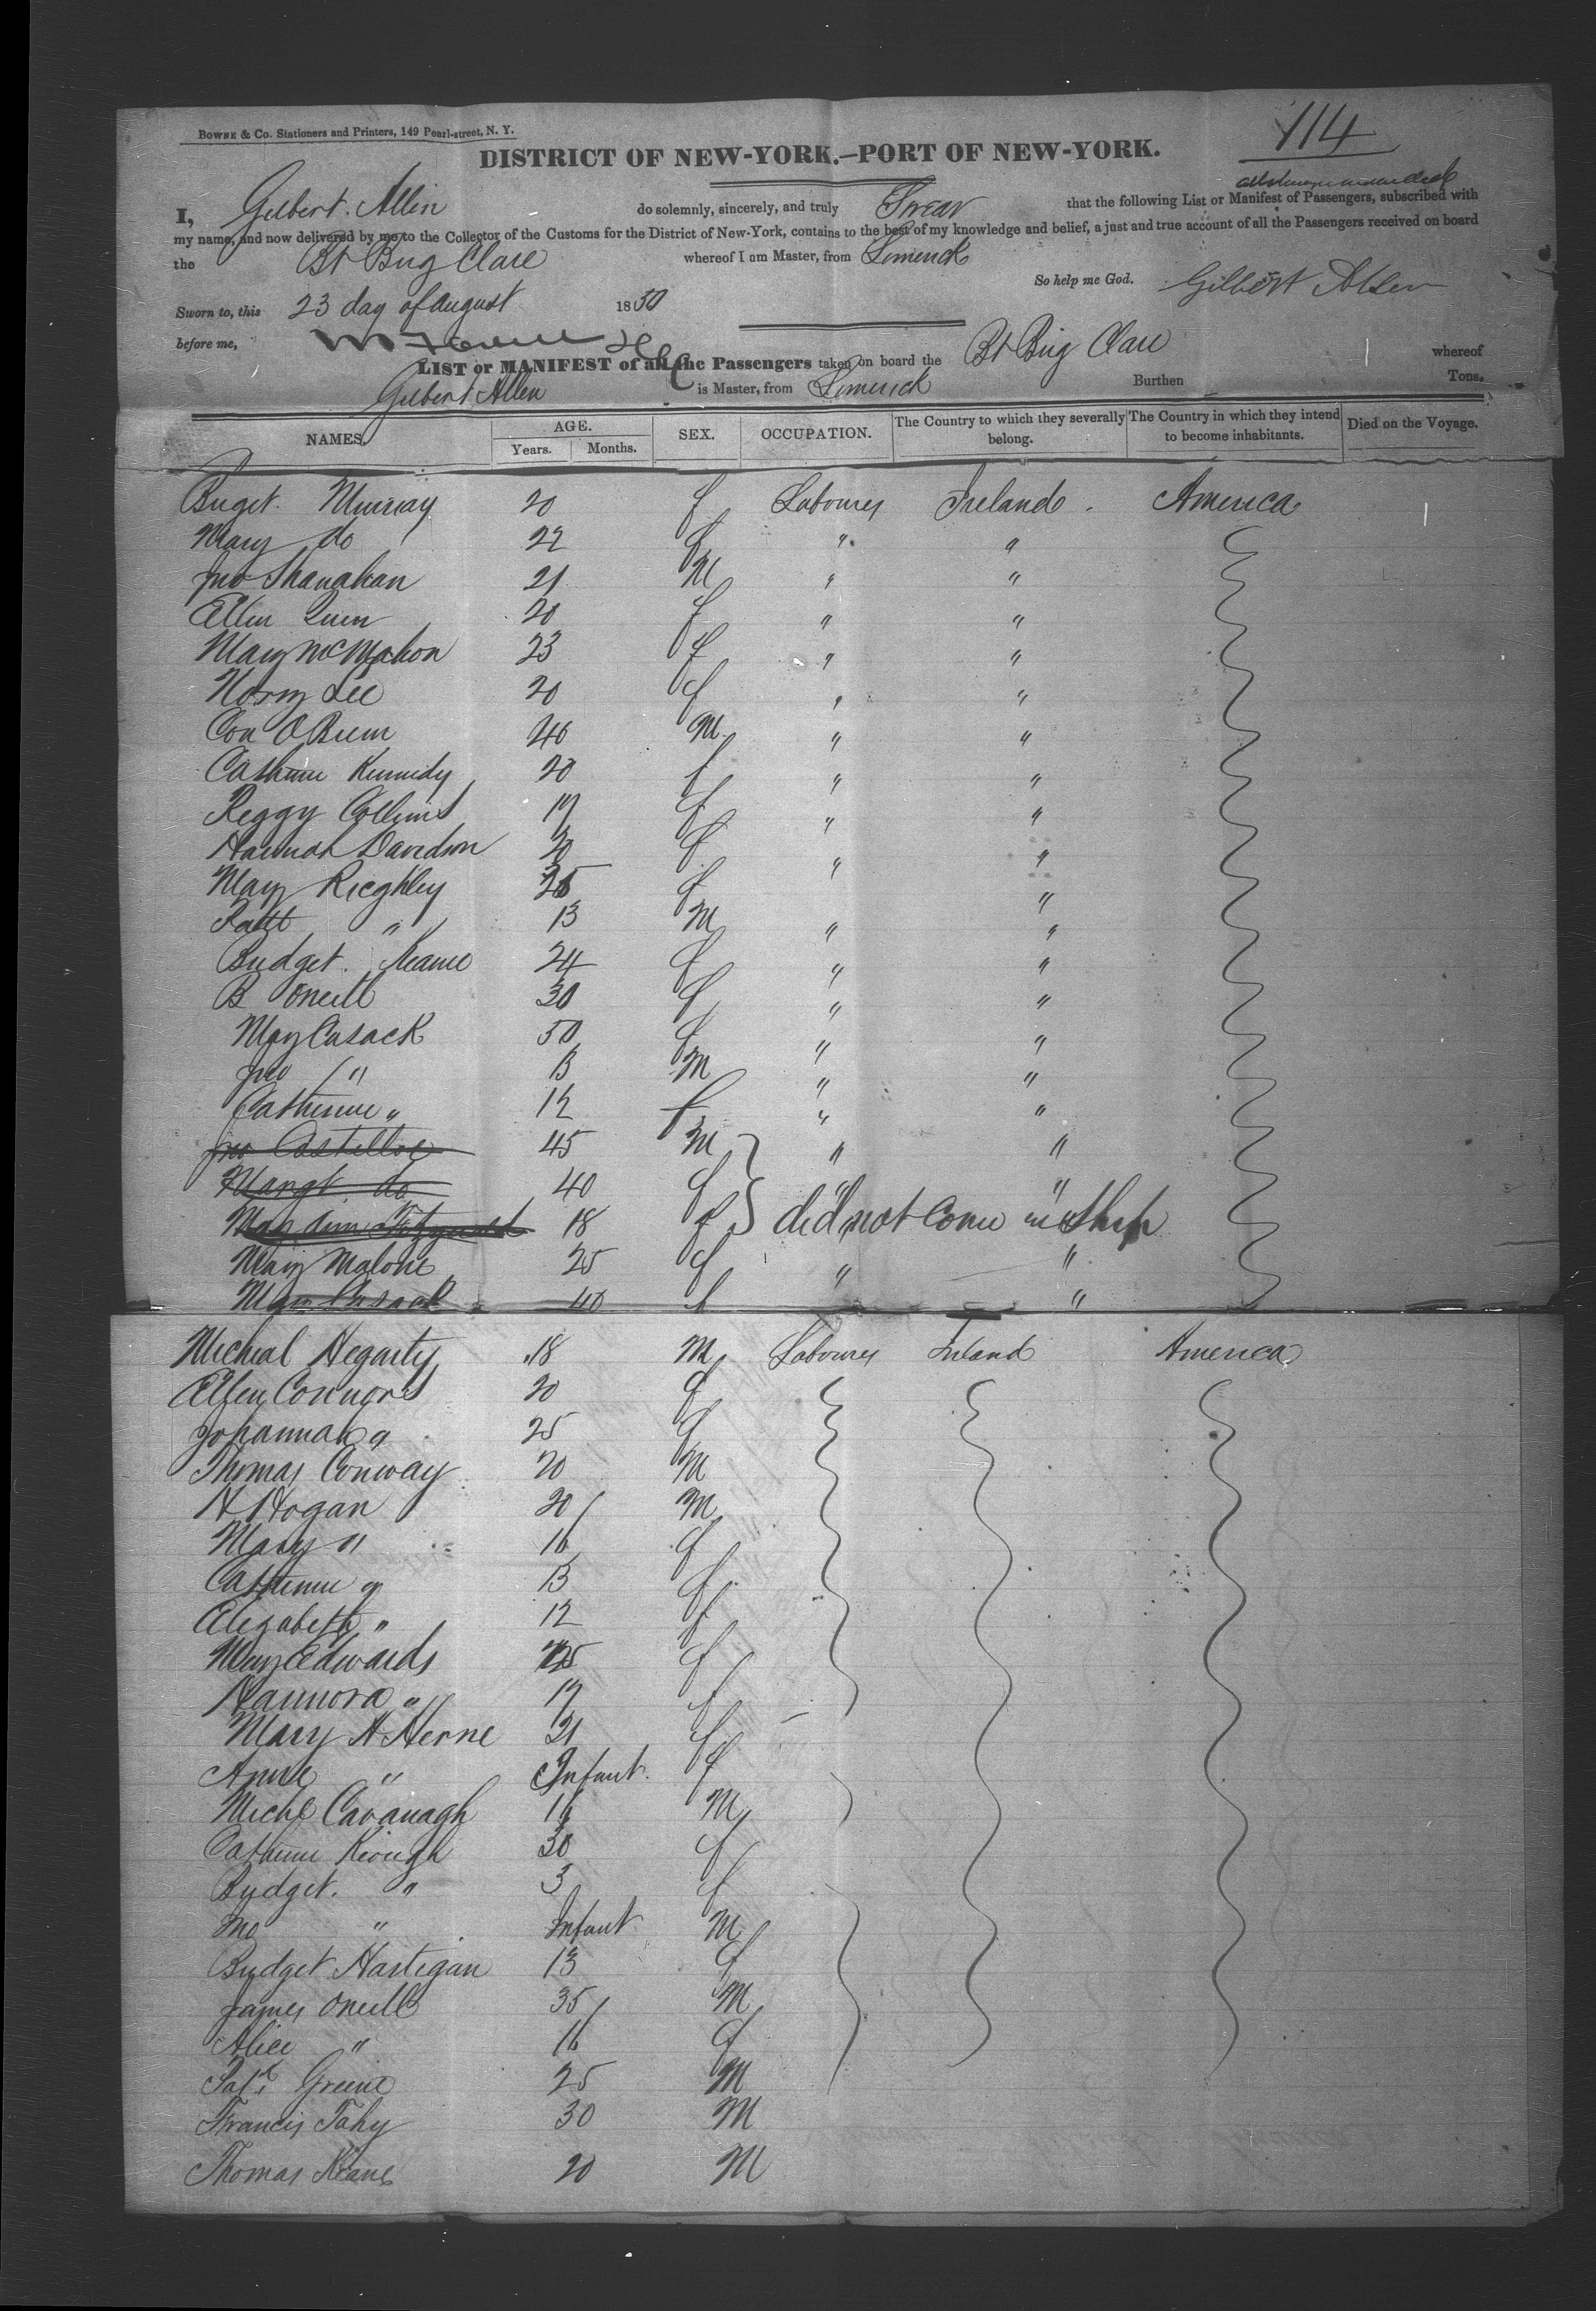 BOWNE & Co. Stationers and Printers, 149 Pearl-street, N. Y.
114
DISTRICT OF NEW-YORK.—PORT OF NEW-YORK.
I, Gilbert Allen do solemnly, sincerely, and truly Swear that the following List or Manifest of Passengers, subscribed with
my name, and now delivered by me to the Collector of the Customs for the District of New-York, contains to the best of my knowledge and belief, a just and true account of all the Passengers received on board
the Bt Brig Clare whereof I am Master, from Limerick
So help me God. Gilbert Allen
Sworn to, this 23 day of August 1850
before me,
LIST or MANIFEST of all the Passengers taken on board the Bt Brig Clare whereof
Gilbert Allen is Master, from Limerick Burthen Tons.
NAMES. AGE. SEX. OCCUPATION. The Country to which they severally belong. The Country in which they intend to become inhabitants. Died on the Voyage.
Years. Months.
Briget Murray 20 f Laboures Ireland America
Mary do 22 f " "
Jno Shanahan 21 M " "
Ellen Quin 20 f " "
Mary McMahon 23 f " "
Norry Lee 20 f " "
Con O Brien 40 M " "
Catherine Kennedy 20 f " "
Peggy Collins 17 f " "
Hannah Davidson 20 f " "
Mary Kieghley f "
Patt " 13 M " "
Bridget Keane 24 f " "
B Oneill 30 f " "
Mary Cusack 50 f " "
Jno " 13 M " "
Catherine " 12 f " "
Jno Costelloe 45 M " "
Margt do 40 f " "
Mary Ann Fitzgerald 18 f did not come in Ship
Mary Malone 25 f " "
Mary Cusack 40 f "
Micheal Hegarty 18 M Laboures Ireland America
Ellen Connors 20 f
Johannah " 25 f
Thomas Conway 20 M
H Hogan 20 M
Mary " 16 f
Catherine " 13 f
Elizabeth " 12 f
Mary Edwards f
Hannora " 17 f
Mary A Herne 21 f
Anne " Infant f
Michl Cavanagh 16 M
Catherine Keough 30 f
Bridget " 3 f
Jno " Infant M
Bridget Hartigan 13 f
James Oneill 35 M
Alice " 16 f
Patk Greene 25 M
Francis Fahy 30 M
Thomas Keane 20 M